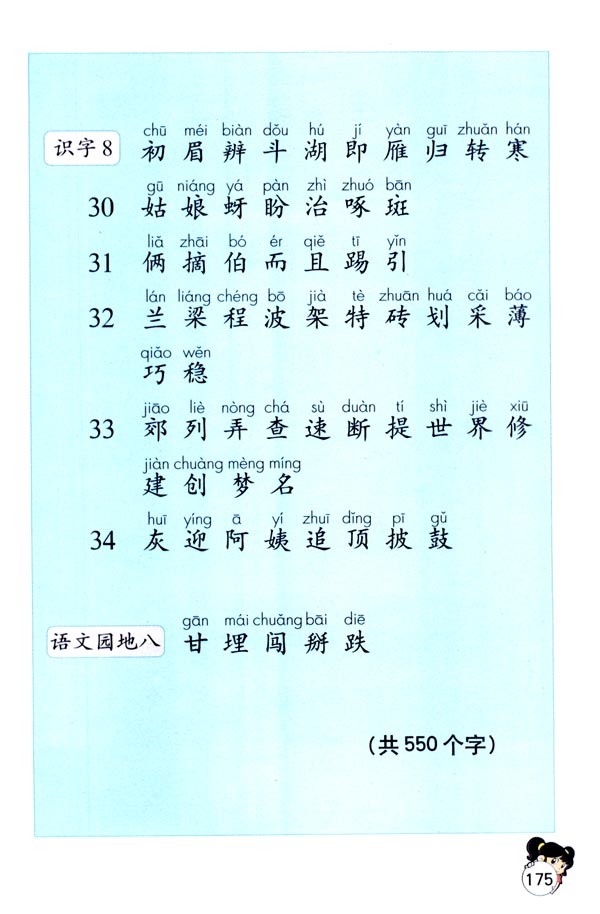 chū méi biàn dǒu hú jí yàn guī zhuǎn hán
识字8 初 眉 辨 斗 湖 即 雁 归 转 寒
gū niáng yá pàn zhì zhuó bān
30 姑 娘 蚜 盼 治 啄 斑
liǎ zhāi bó ér qiě tī yǐn
31 俩 摘 伯 而 且 踢 引
lán liáng chéng bō jià tè zhuān huá cǎi báo
32 兰 梁 程 波 架 特 砖 划 采 薄
qiǎo wěn
巧 稳
jiāo liè nòng chá sù duàn tí shì jiè xiū
33 郊 列 弄 查 速 断 提 世 界 修
jiàn chuàng mèng míng
建 创 梦 名
huī yíng ā yí zhuī dǐng pī gǔ
34 灰 迎 阿 姨 追 顶 披 鼓
gān mái chuǎng bāi diē
语文园地八 甘 埋 闯 掰 跌
（共550个字）
175